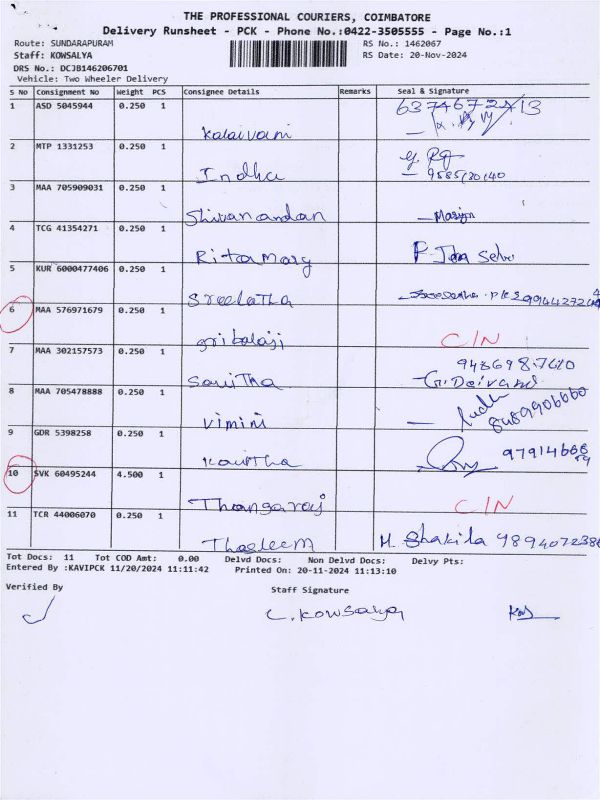 THE PROFESSIONAL COURIERS, COIMBATORE
Delivery Runsheet - PCK - Phone No.:0422-3505555 - Page No.:1
Route: SUNDARAPURAM RS No.: 1462067
Staff: KOWSALYA RS Date: 20-Nov-2024
DRS No.: DCJB146206701
Vehicle: Two Wheeler Delivery
S No Consignment No Weight PCS Consignee Details Remarks Seal & Signature
1 ASD 5045944 0.250 1
Kalaivani
2 MTP 1331253 0.250 1
Indhu
3 MAA 705909031 0.250 1
Shivanandan
4 TCG 41354271 0.250 1
Rita mary
5 KUR 6000477406 0.250 1
Sreelatha
6 MAA 576971679 0.250 1
gribalaji C/N
7 MAA 302157573 0.250 1
Savitha
8 MAA 705478888 0.250 1
Vimini
9 GDR 5398258 0.250 1
Kavitha
10 SVK 60495244 4.500 1
Thangaraj C/N
11 TCR 44006070 0.250 1
Thasleem M. Shakila
Tot Docs: 11 Tot COD Amt: 0.00 Delvd Docs: Non Delvd Docs: Delvy Pts:
Entered By :KAVIPCK 11/20/2024 11:11:42 Printed On: 20-11-2024 11:13:10
Verified By Staff Signature
C. Kowsalya